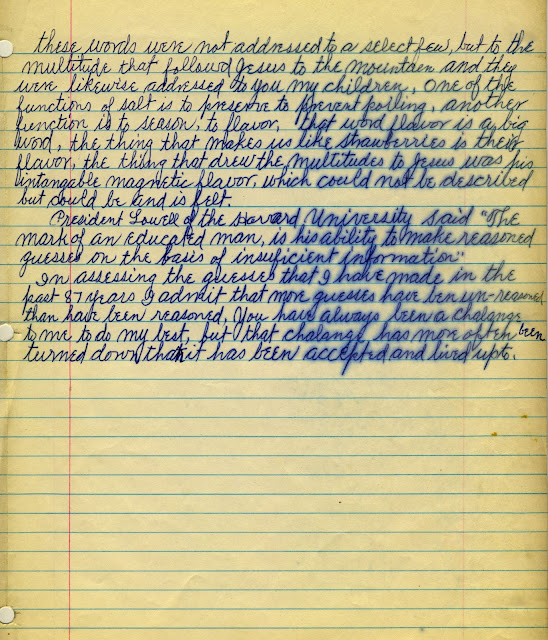 these words were not addressed to a select few, but to the
multitude that followd Jesus to the mountain and they
were likewise addressed to you my children, One of the
functions of salt is to preserve to prevent poiling, another
function is to season, to flavor, that word flavor is a big
word, the thing that makes us like strawberries is their
flavor, the thing that drew the multitudes to Jesus was his
intangeable magnetic flavor, which could not be described
but could be and is felt.
President Lowell of the Harvard University said "The
mark of an educated man, is his ability to make reasoned
guesses on the basis of insuficient information"
In assessing the guesses that I have made in the
past 87 years I admit that more guesses have ben un-reasoned
than have been reasoned, You have always been a chalange
to me to do my best, but that chalange has more often been
turned down than it has been accepted and lived up to.